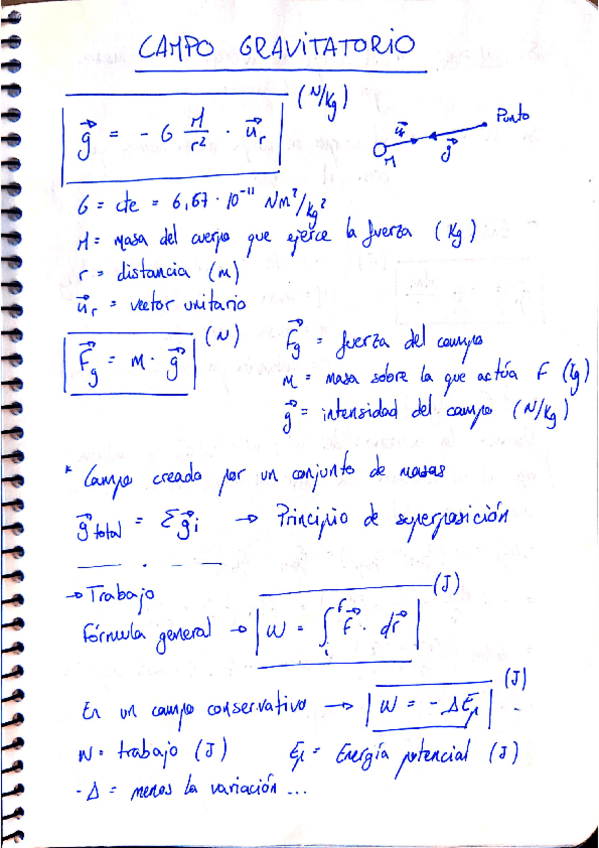 CAMPO GRAVITATORIO
g⃗ = - G M/r² · u⃗r (N/Kg)
Punto
u⃗r
g⃗
M
G = cte = 6,67 · 10⁻¹¹ Nm²/Kg²
M = masa del cuerpo que ejerce la fuerza (Kg)
r = distancia (m)
u⃗r = vector unitario
F⃗g = m · g⃗ (N)
F⃗g = fuerza del campo
m = masa sobre la que actúa F (Kg)
g⃗ = intensidad del campo (N/Kg)
* Campo creado por un conjunto de masas
g⃗total = Σg⃗i → Principio de superposición
→ Trabajo
Fórmula general → W = ∫ᵢᶠ F⃗ · dr⃗ (J)
En un campo conservativo → W = - ΔEp (J)
W = trabajo (J) Ep = Energía potencial (J)
- Δ = menos la variación ...